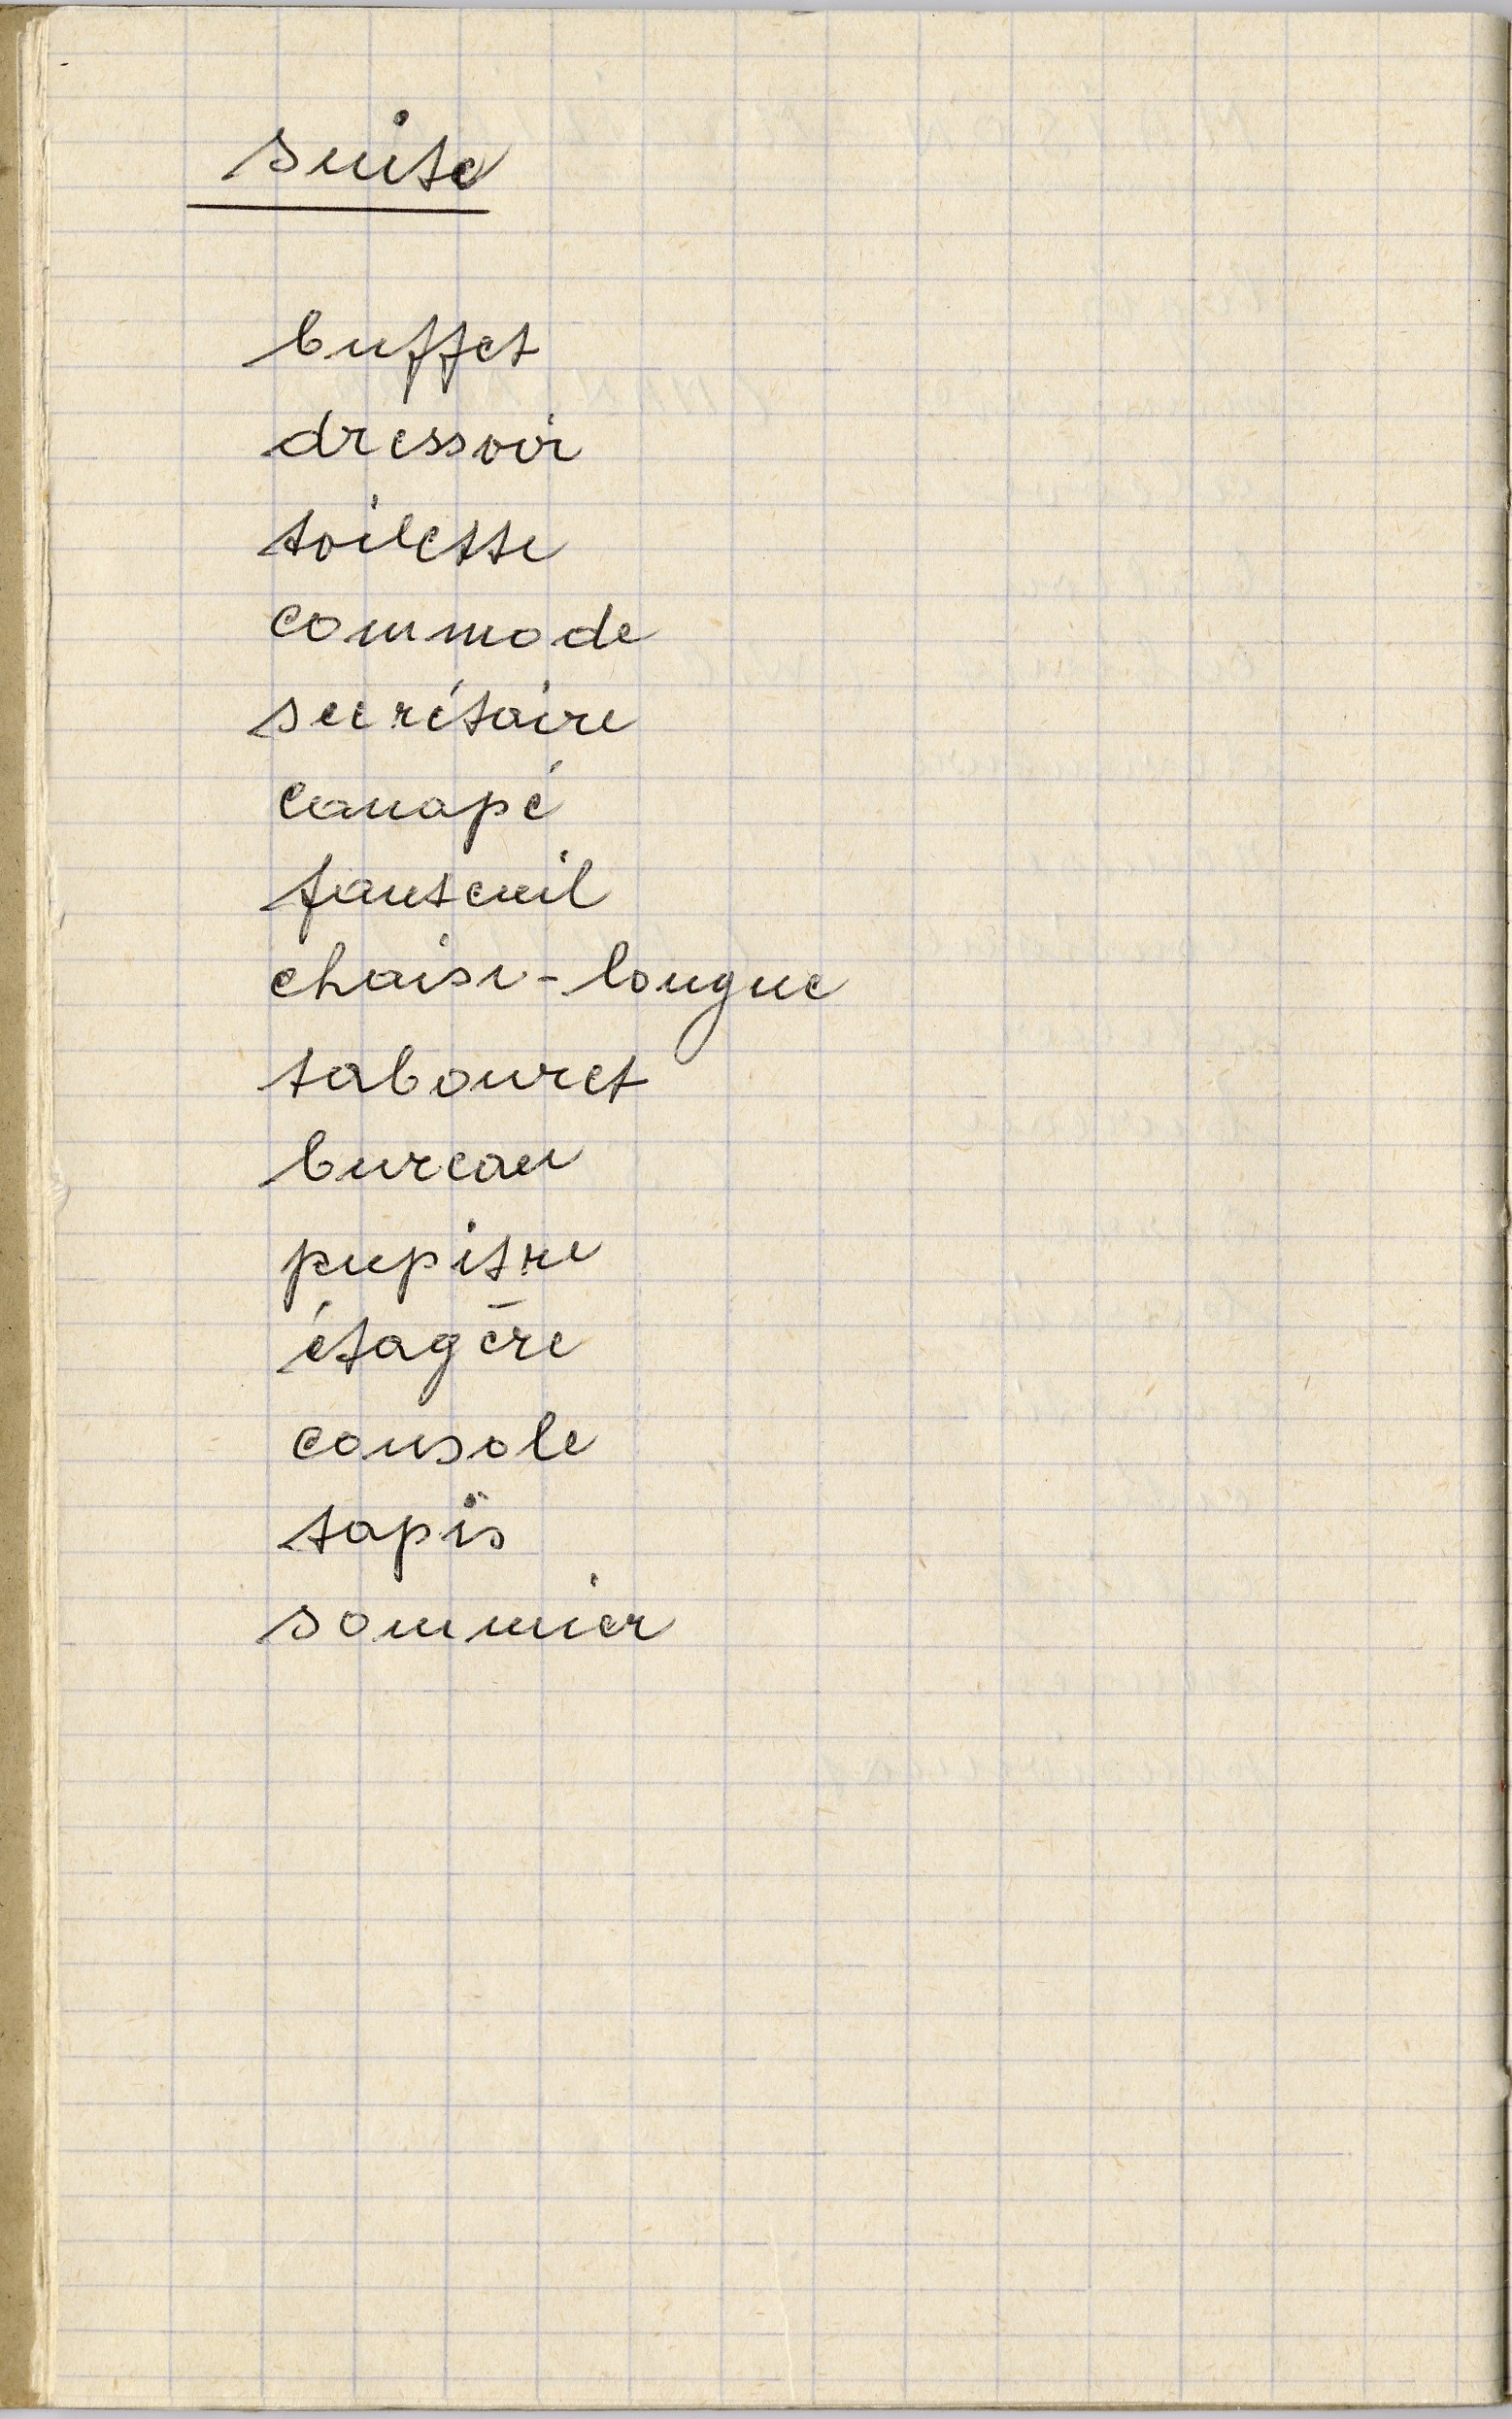 suite
buffet
dressoir
toilette
commode
secrétaire
canapé
fauteuil
chaise-longue
tabouret
bureau
pupitre
étagère
console
tapis
sommier